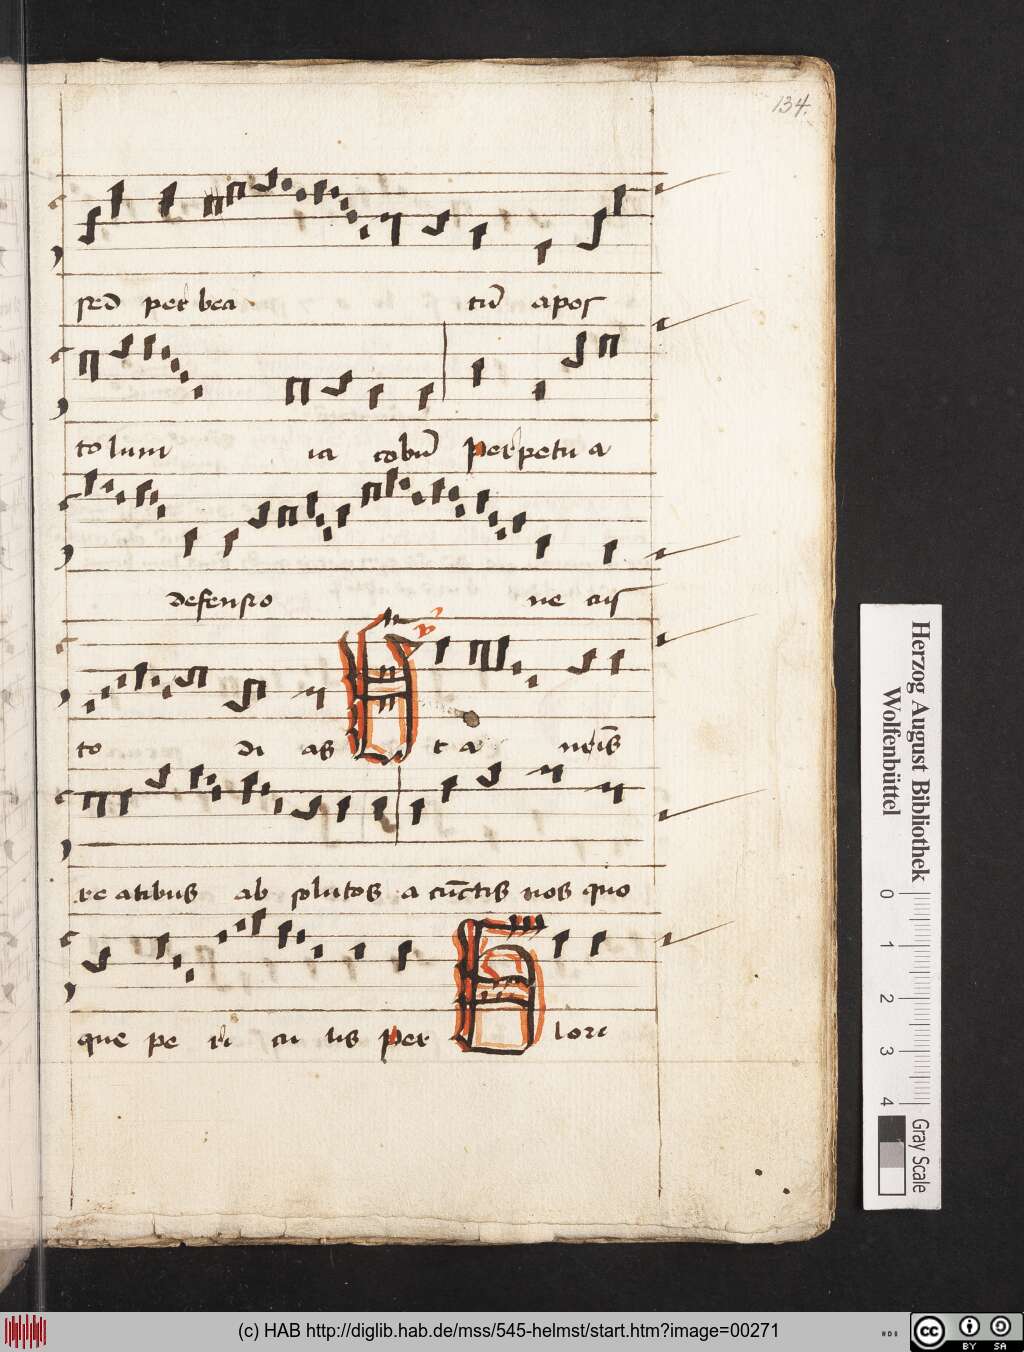 134.
sed per bea tū apos
tolum ia cobū Perpetu a
defensio ne cus
to di as E t a neis
re atibus ab solutos a cūctis nos quo
que pe ri cu lis Per lori
Herzog August Bibliothek
Wolfenbüttel
0 1 2 3 4
Gray Scale
(c) HAB http://diglib.hab.de/mss/545-helmst/start.htm?image=00271
cc BY SA